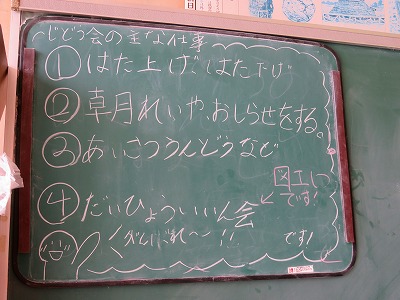 〜じどう会の主な仕事
①はた上げ、はた下げ
②卓月れいや、おしらせをする。
③あいさつうんどうなど
④だいひょういいん会
図工に
です!
です!